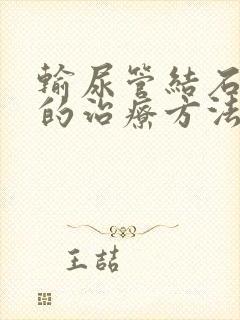 輸尿管結石
的治療方法
王喆